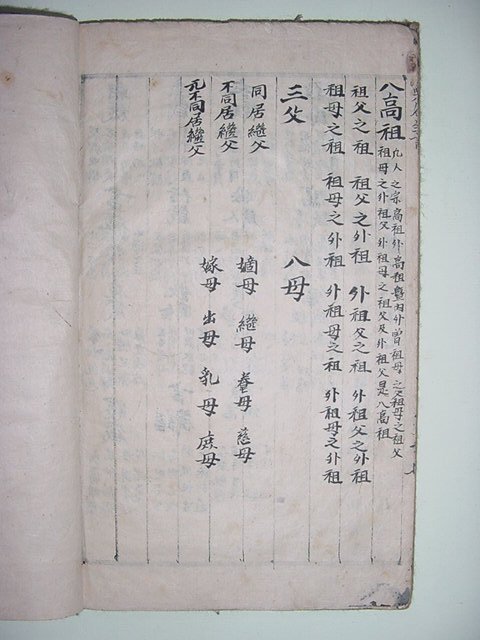 八高祖 凡人之宗高祖外高祖曁內外曾祖母之父祖母之祖父
祖母之外祖父外祖母之祖父及外祖父是八高祖
祖父之祖 祖父之外祖 外祖父之祖 外祖父之外祖
祖母之祖 祖母之外祖 外祖母之祖 外祖母之外祖
三父 八母
同居繼父 嫡母 繼母 養母 慈母
不同居繼父 嫁母 出母 乳母 庶母
元不同居繼父